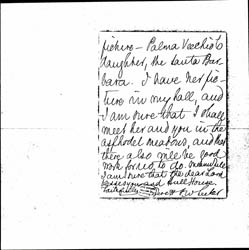 picture — Palma Vecchio's
daughter, the Santa Bar-
bara. I have her pic-
ture in my hall, and
I am sure that I shall
meet her and you in the
asphodel meadows, and that
there also will be good
work for us to do. Meanwhile
I am sure that the dear Lord
and Hull House.
Faithfully